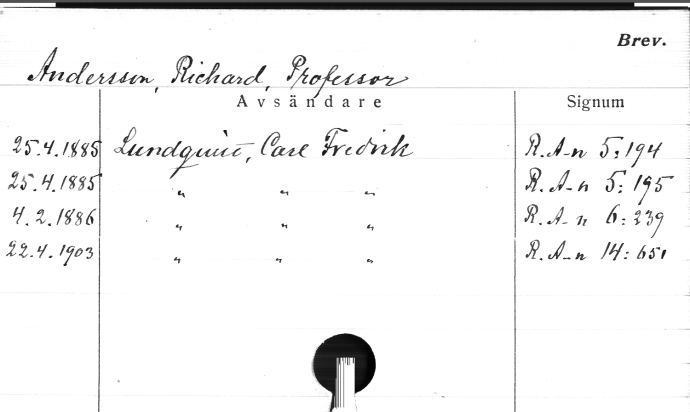 Brev.
Andersson, Richard, Professor
Avsändare Signum
25.4.1885 Lundquist, Carl Fredrik R. A-n 5:194
25.4.1885 " " " R. A-n 5:195
4.2.1886 " " " R. A-n 6:239
22.4.1903 " " " R. A-n 14:651